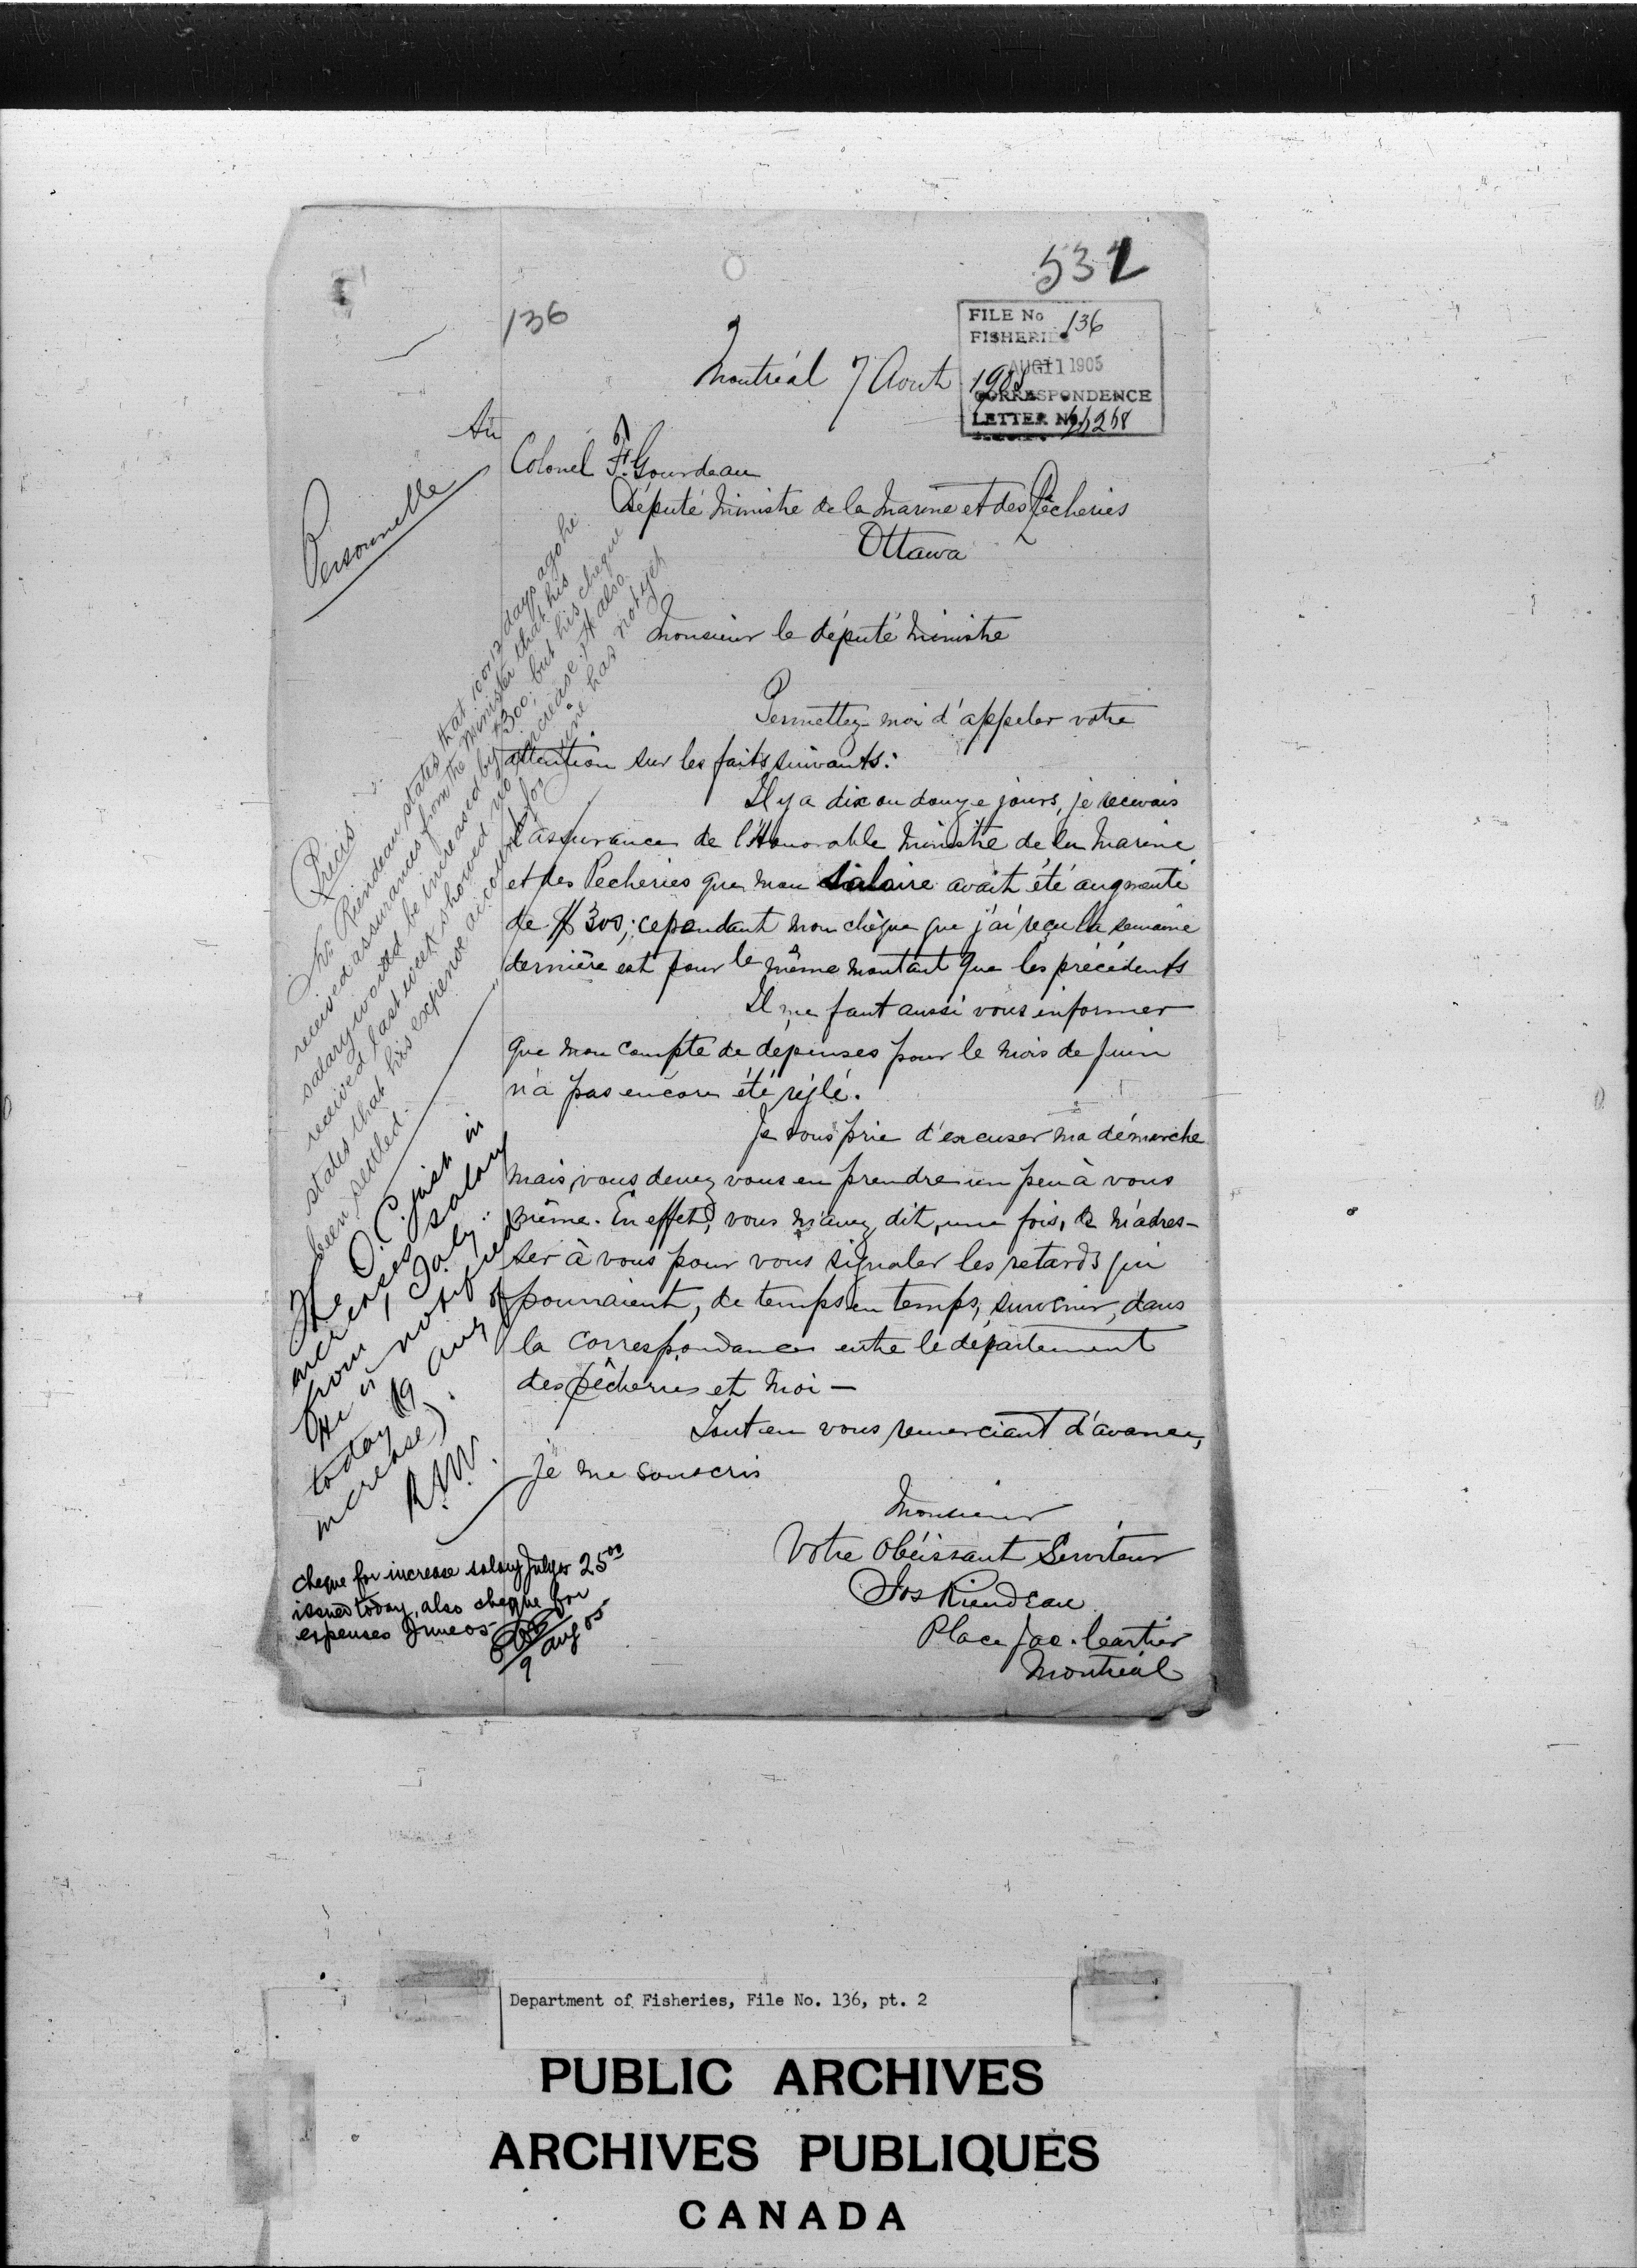 532
136
FILE No 136
FISHERIES
AUG 11 1905
CORRESPONDENCE
LETTER No
Montréal 7 Aout 1905
Au
Colonel F. Gourdeau
Député Ministre de la Marine et des Pêcheries
Ottawa
Personnelle
Monsieur le député Ministre
Permettez-moi d'appeler votre
attention sur les faits suivants:
Il y a dix ou douze jours, je recevais
l'assurance de l'Honorable Ministre de la Marine
et des Pecheries que mon salaire avait été augmenté
de $300; cependant mon chèque que j'ai reçu la semaine
dernière est pour le même montant que les précédents
Il me faut aussi vous informer
que mon compte de dépenses pour le mois de Juin
n'a pas encore été réglé.
Je vous prie d'excuser ma démarche
mais, vous devez vous en prendre un peu à vous
même. En effet, vous m'avez dit, une fois, de m'adres-
ser à vous pour vous signaler les retards qui
pourraient, de temps en temps, survenir, dans
la correspondance entre le département
des pêcheries et moi —
Tout en vous remerciant d'avance,
je me souscris
Monsieur
Votre Obéissant Serviteur
Jos Riendeau
Place Jac. Cartier
Montréal
Précis:
Mr. Riendeau states that 10 or 12 days ago he
received assurances from the Minister that his
salary would be increased by $300; but his cheque
received last week showed no increase. He also
states that his expense account for June has not yet
been settled.
The O.C. just in
increases salary
from 1 July.
He is notified
today (9 Aug of
increase).
R.N.V.
Cheque for increase salary July 05 25.00
issued today, also cheque for
expenses June 05
9 Aug 05
Department of Fisheries, File No. 136, pt. 2
PUBLIC ARCHIVES
ARCHIVES PUBLIQUES
CANADA